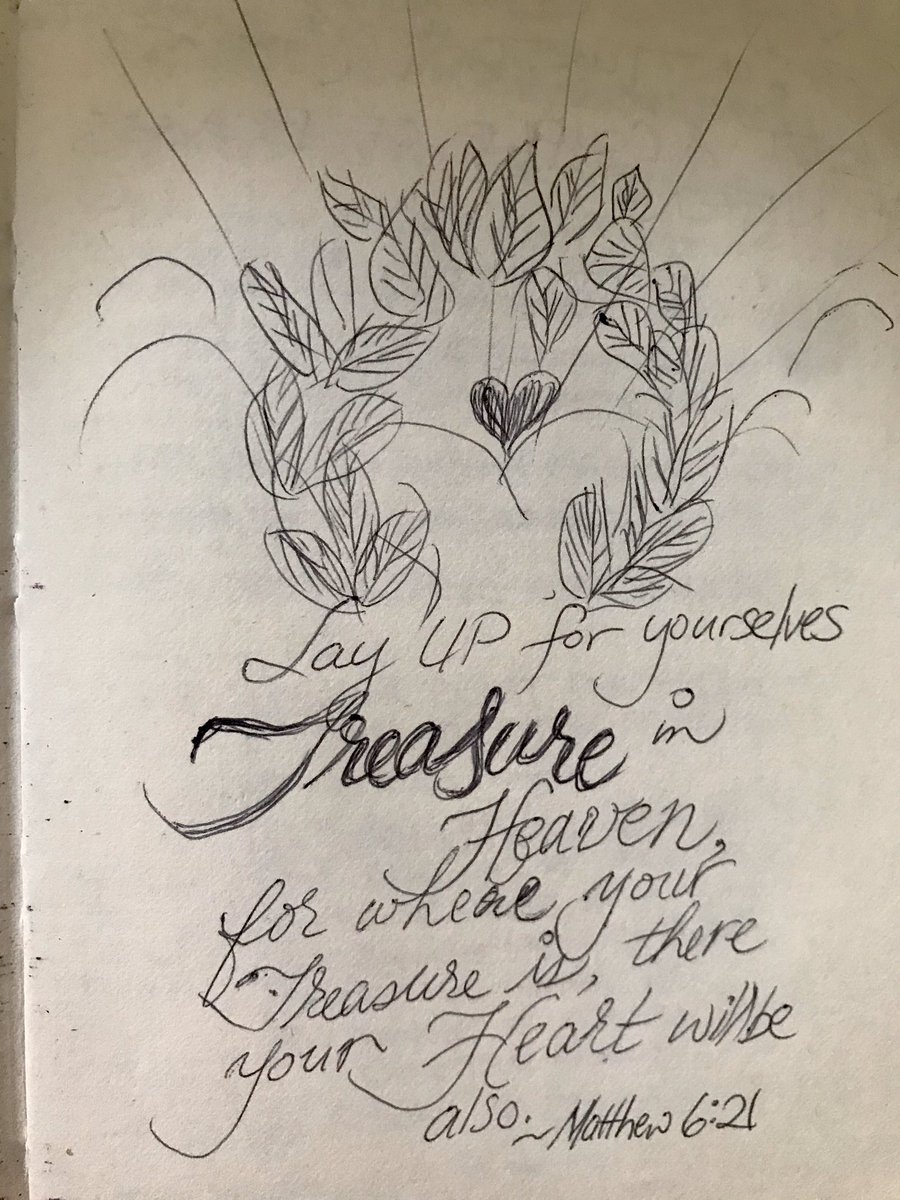 Lay UP for yourselves
Treasure in
Heaven,
for where your
Treasure is, there
your Heart will be
also. ~Matthew 6:21